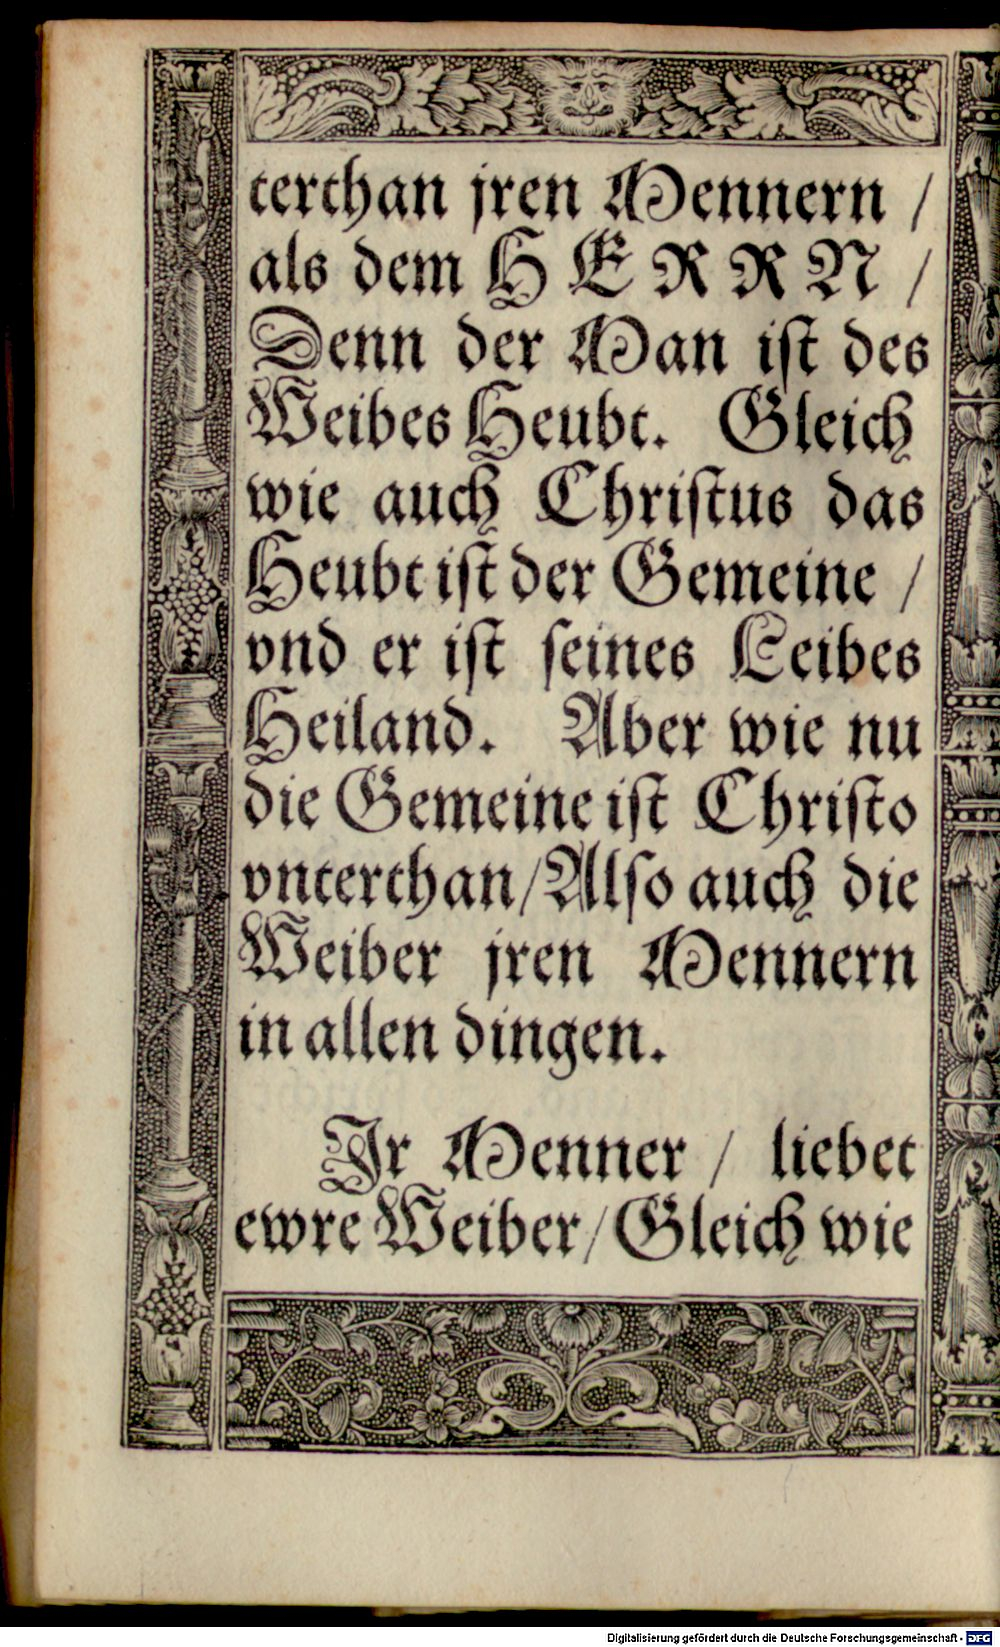 terthan jren Mennern /
als dem HERRN /
Denn der Man iſt des
Weibes Heubt. Gleich
wie auch Chriſtus das
Heubt iſt der Gemeine /
vnd er iſt ſeines Leibes
Heiland. Aber wie nu
die Gemeine iſt Chriſto
vnterthan / Alſo auch die
Weiber jren Mennern
in allen dingen.
Jr Menner / liebet
ewre Weiber / Gleich wie
Digitalisierung gefördert durch die Deutsche Forschungsgemeinschaft - DFG